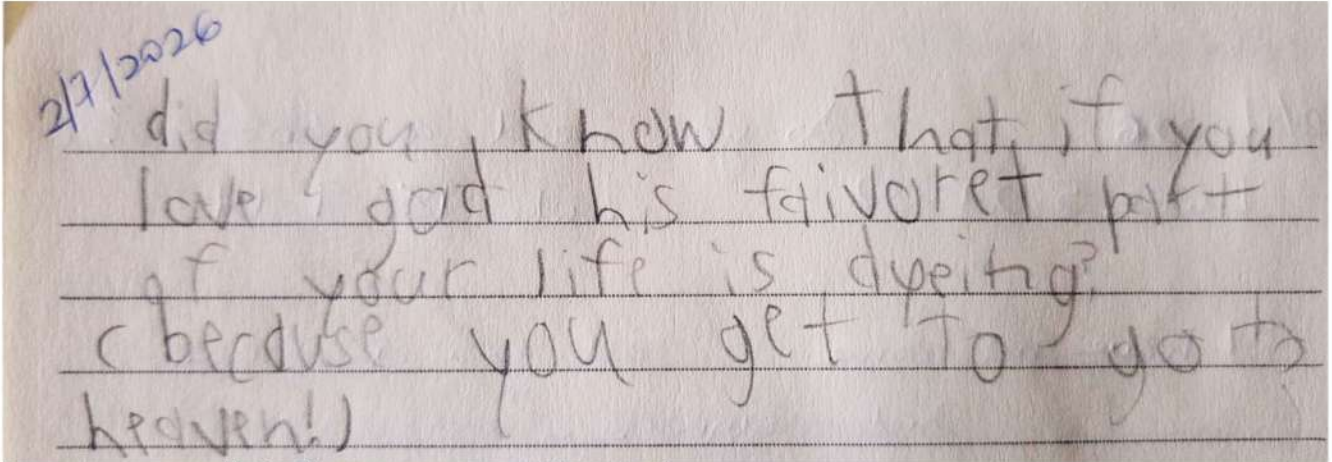 2/7/2026
did you know that if you
love god his faivoret part
of your life is dyeing?
(because you get to go to
heaven!)